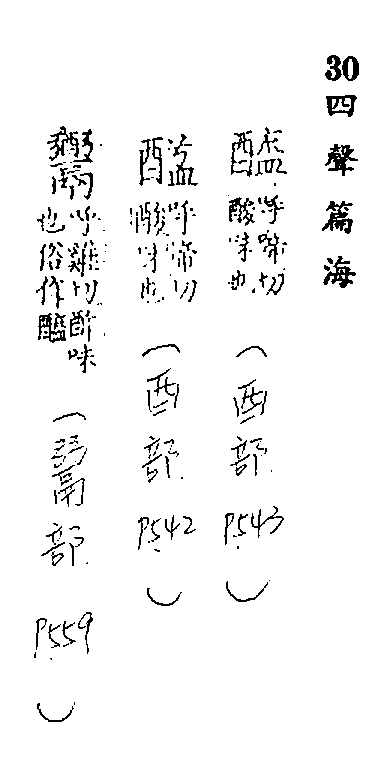 30四聲篇海
呼啼切
酸味也
(酉部 P.543)
呼啼切
酸味也
(酉部 P.542)
呼雞切酢味
也俗作醯
(䰜部 P.559)